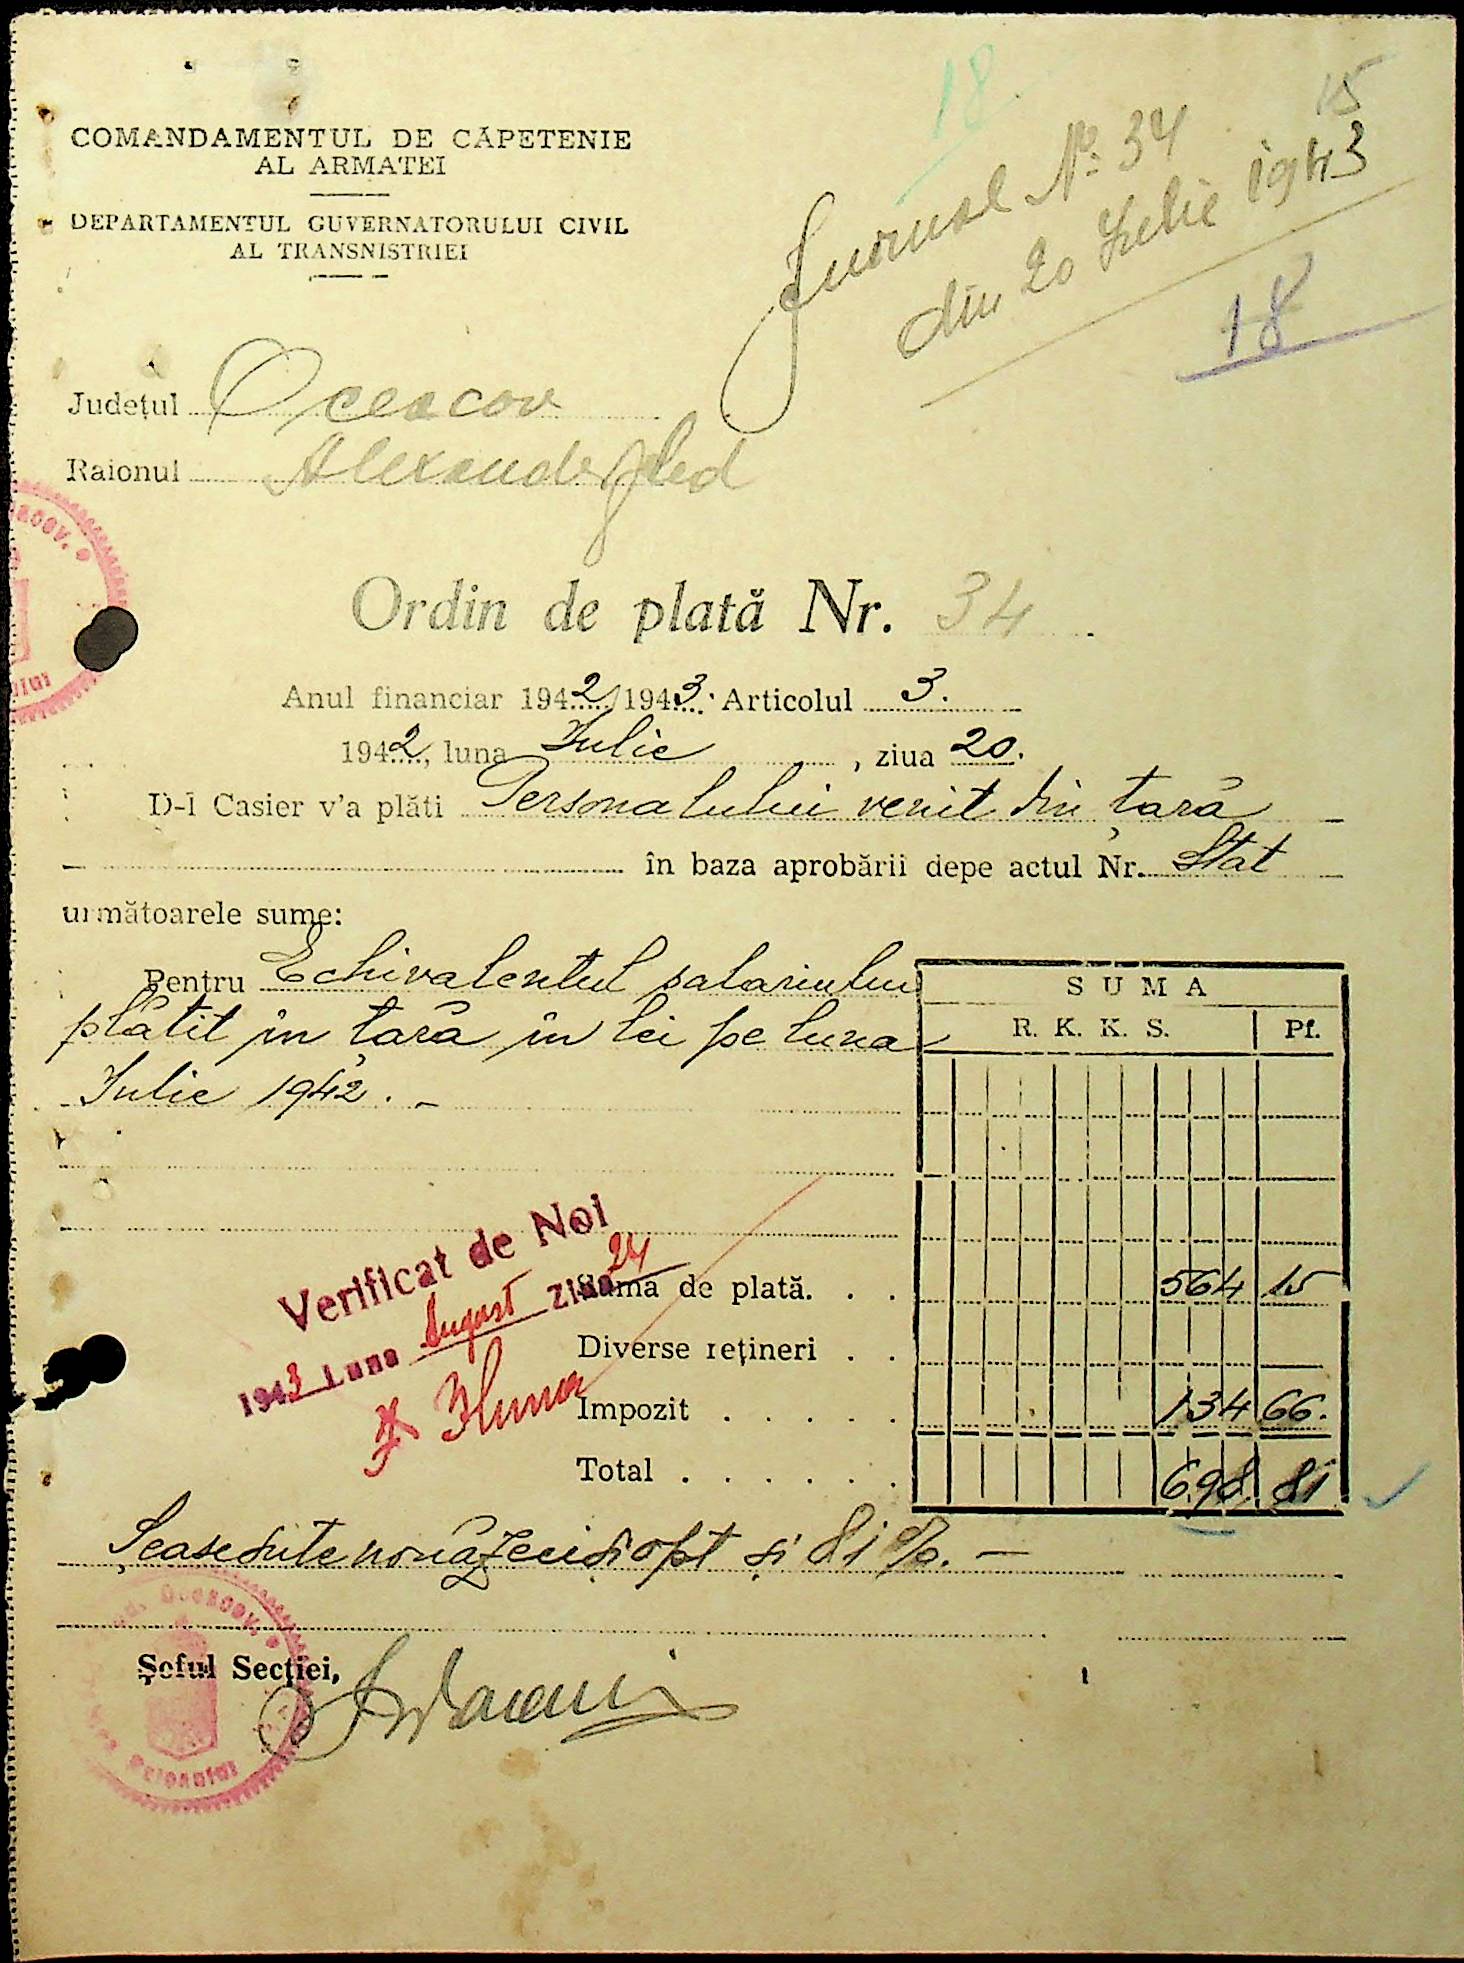 18
15
COMANDAMENTUL DE CĂPETENIE
AL ARMATEI
DEPARTAMENTUL GUVERNATORULUI CIVIL
AL TRANSNISTRIEI
Jurnal No. 34
din 20 Iulie 1943
18
Județul Oceacov
Raionul Alexanderfled
Ordin de plată Nr. 34
Anul financiar 1942/1943. Articolul 3.
1942, luna Iulie, ziua 20.
D-l Casier v'a plăti Personalului venit din țară
în baza aprobării depe actul Nr. Stat
următoarele sume:
Pentru Echivalentul salariului
plătit în țară în lei pe luna
Iulie 1942. -
SUMA
R. K. K. S. Pf.
Verificat de Noi
1943 Luna August ziua 24
Suma de plată. . . 564 15
Diverse rețineri . . —
Impozit . . . . . 134 66.
Total . . . . . . 698 81
Șeasesute nouăzecișiopt și 81 %. —
Șeful Secției,
Oceacov.
Raionului